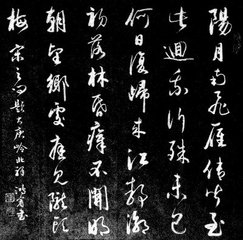 陽月南飛雁傳聞至
此迴我行殊未已
何日復歸來江靜潮
初落林昏瘴不開明
朝望鄉處應見隴頭
梅 宋之問題大庾岭北驛